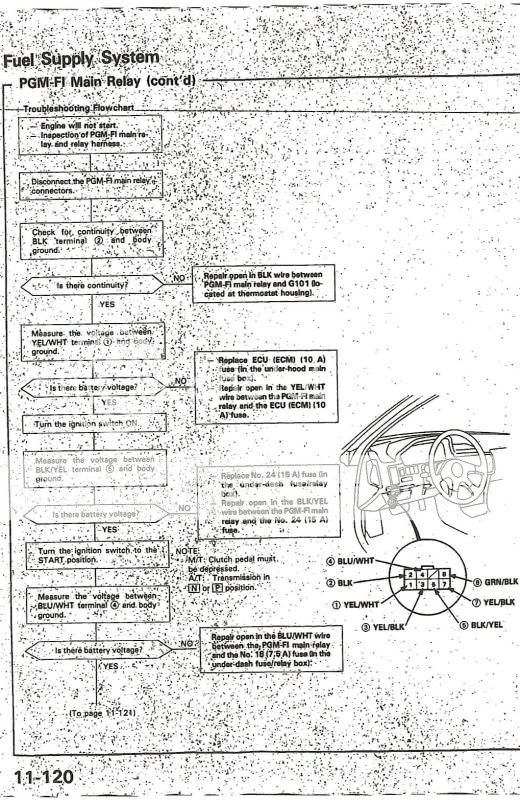 Fuel Supply System
PGM-FI Main Relay (cont'd)
Troubleshooting Flowchart
— Engine will not start.
— Inspection of PGM-FI main re-
lay and relay harness.
Disconnect the PGM-FI main relay's
connectors.
Check for continuity between
BLK terminal ② and body
ground.
Is there continuity?
NO
Repair open in BLK wire between
PGM-FI main relay and G101 (lo-
cated at thermostat housing).
YES
Measure the voltage between
YEL/WHT terminal ① and body
ground.
Is there battery voltage?
NO
— Replace ECU (ECM) (10 A)
fuse (in the under-hood main
fuse box).
— Repair open in the YEL/WHT
wire between the PGM-FI main
relay and the ECU (ECM) (10
A) fuse.
YES
Turn the ignition switch ON.
Measure the voltage between
BLK/YEL terminal ⑤ and body
ground.
Is there battery voltage?
NO
— Replace No. 24 (15 A) fuse (in
the under-dash fuse/relay
box).
— Repair open in the BLK/YEL
wire between the PGM-FI main
relay and the No. 24 (15 A)
fuse.
YES
Turn the ignition switch to the
START position.
NOTE:
M/T: Clutch pedal must
be depressed.
A/T: Transmission in
N or P position.
Measure the voltage between
BLU/WHT terminal ④ and body
ground.
Is there battery voltage?
NO
Repair open in the BLU/WHT wire
between the PGM-FI main relay
and the No. 18 (7.5 A) fuse (in the
under-dash fuse/relay box).
YES
(To page 11-121)
④ BLU/WHT
② BLK
① YEL/WHT
③ YEL/BLK
2 4 8
1 3 5 7
⑧ GRN/BLK
⑦ YEL/BLK
⑤ BLK/YEL
11-120